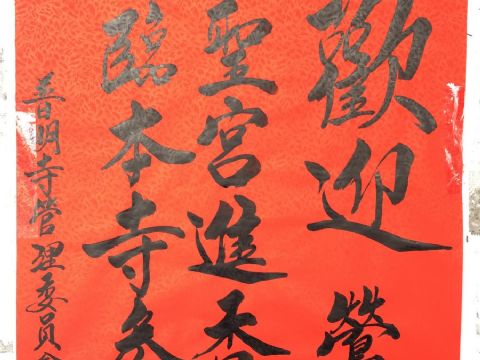 歡迎鶯
聖宮進香
臨本寺參
普明寺管理委員會